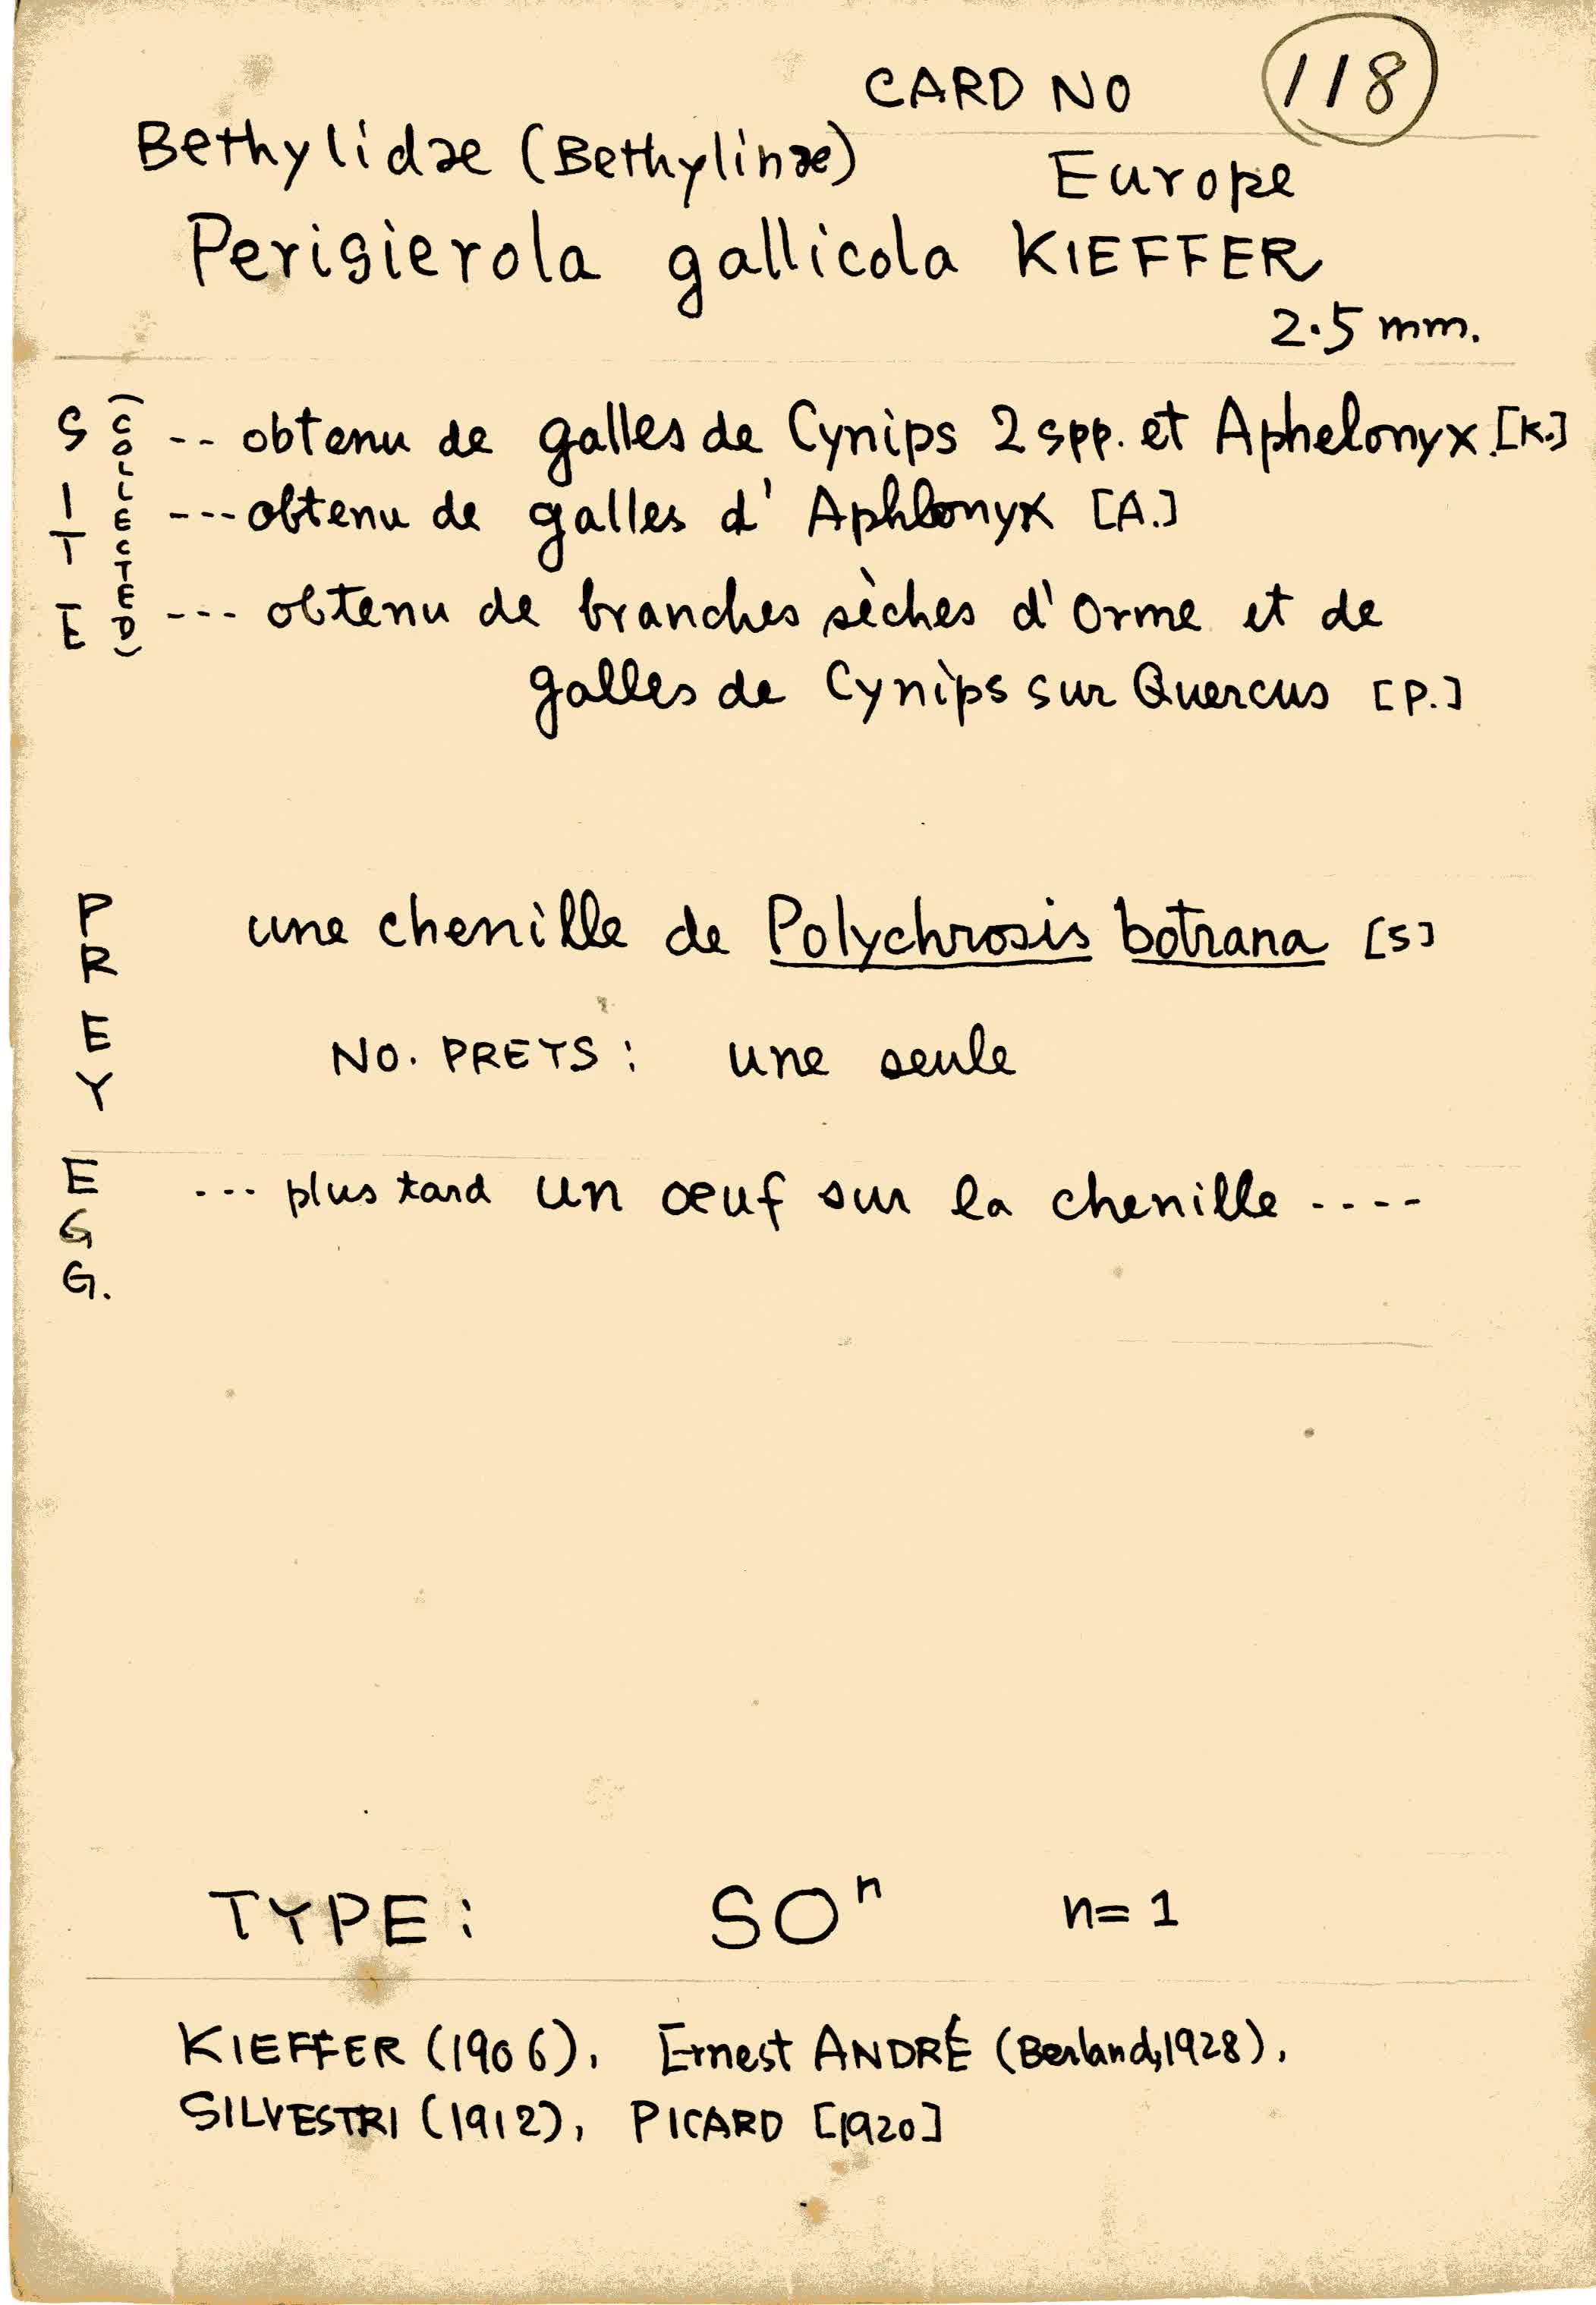 CARD NO 118
Bethylidae (Bethylinae)
Europe
Perisierola gallicola KIEFFER
2.5 mm.
SITE (COLLECTED)
-- obtenu de galles de Cynips 2 spp. et Aphelonyx. [K.]
--- obtenu de galles d' Aphlonyx [A.]
--- obtenu de branches sèches d'Orme et de
galles de Cynips sur Quercus [P.]
PREY
une chenille de Polychrosis botrana [S]
NO. PREYS: une seule
EGG.
--- plus tard un oeuf sur la chenille ----
TYPE: SOⁿ n=1
KIEFFER (1906), Ernest ANDRÉ (Berland, 1928),
SILVESTRI (1912), PICARD [1920]